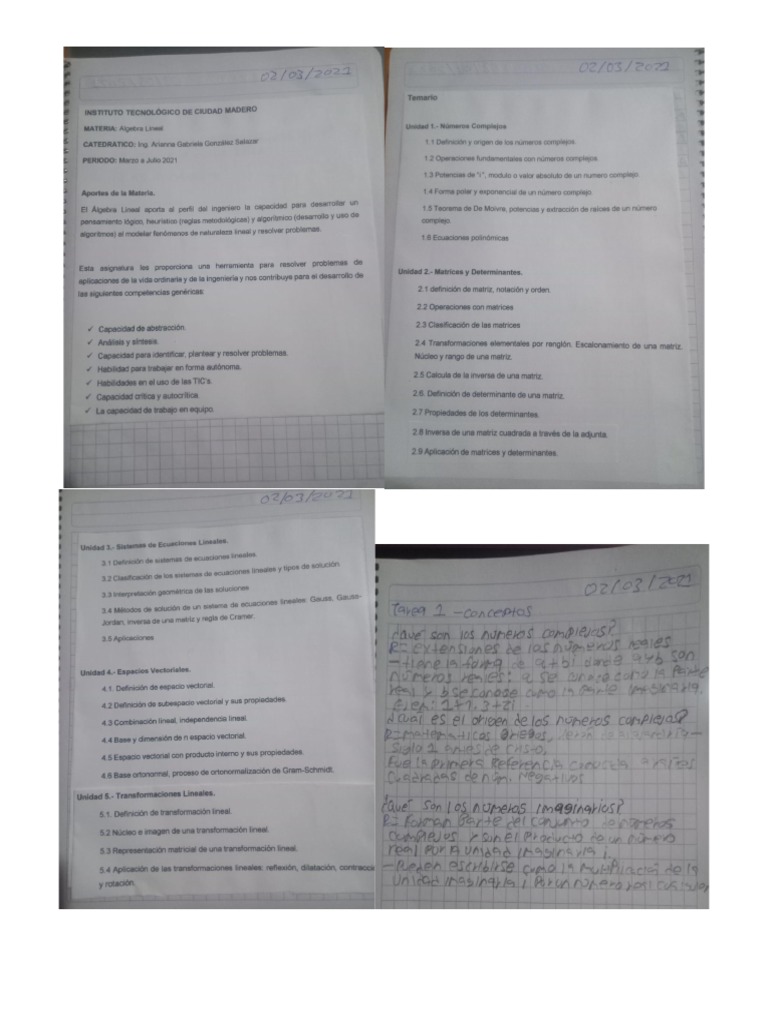 02/03/2021
INSTITUTO TECNOLÓGICO DE CIUDAD MADERO
MATERIA: Algebra Lineal
CATEDRÁTICO: Ing. Arianna Gabriela González Salazar
PERIODO: Marzo a Julio 2021
Aportes de la Materia.
El Álgebra Lineal aporta al perfil del ingeniero la capacidad para desarrollar un
pensamiento lógico, heurístico (reglas metodológicas) y algorítmico (desarrollo y uso de
algoritmos) al modelar fenómenos de naturaleza lineal y resolver problemas.
Esta asignatura les proporciona una herramienta para resolver problemas de
aplicaciones de la vida ordinaria y de la ingeniería y nos contribuye para el desarrollo de
las siguientes competencias genéricas:
✓ Capacidad de abstracción.
✓ Análisis y síntesis.
✓ Capacidad para identificar, plantear y resolver problemas.
✓ Habilidad para trabajar en forma autónoma.
✓ Habilidades en el uso de las TIC's.
✓ Capacidad crítica y autocrítica.
✓ La capacidad de trabajo en equipo.
02/03/2021
Temario
Unidad 1.- Números Complejos
1.1 Definición y origen de los números complejos.
1.2 Operaciones fundamentales con números complejos.
1.3 Potencias de "i", modulo o valor absoluto de un numero complejo.
1.4 Forma polar y exponencial de un número complejo.
1.5 Teorema de De Moivre, potencias y extracción de raíces de un número
complejo.
1.6 Ecuaciones polinómicas
Unidad 2.- Matrices y Determinantes.
2.1 definición de matriz, notación y orden.
2.2 Operaciones con matrices
2.3 Clasificación de las matrices
2.4 Transformaciones elementales por renglón. Escalonamiento de una matriz.
Núcleo y rango de una matriz.
2.5 Calculo de la inversa de una matriz.
2.6. Definición de determinante de una matriz.
2.7 Propiedades de los determinantes.
2.8 Inversa de una matriz cuadrada a través de la adjunta.
2.9 Aplicación de matrices y determinantes.
02/03/2021
Unidad 3.- Sistemas de Ecuaciones Lineales.
3.1 Definición de sistemas de ecuaciones lineales.
3.2 Clasificación de los sistemas de ecuaciones lineales y tipos de solución
3.3 Interpretación geométrica de las soluciones
3.4 Métodos de solución de un sistema de ecuaciones lineales: Gauss, Gauss-
Jordan, inversa de una matriz y regla de Cramer.
3.5 Aplicaciones
Unidad 4.- Espacios Vectoriales.
4.1. Definición de espacio vectorial.
4.2 Definición de subespacio vectorial y sus propiedades.
4.3 Combinación lineal, independencia lineal.
4.4 Base y dimensión de n espacio vectorial.
4.5 Espacio vectorial con producto interno y sus propiedades.
4.6 Base ortonormal, proceso de ortonormalización de Gram-Schmidt.
Unidad 5.- Transformaciones Lineales.
5.1. Definición de transformación lineal.
5.2 Núcleo e imagen de una transformación lineal.
5.3 Representación matricial de una transformación lineal.
5.4 Aplicación de las transformaciones lineales: reflexión, dilatación, contracció
y rotación.
02/03/2021
Tarea 1 - conceptos
¿Qué son los números complejos?
R= Extensiones de los números reales
- tiene la forma de a+bi donde a y b son
números reales; a se conoce como la parte
real y b se conoce como la parte imaginaria.
Ejem: 1+i, 3+2i
¿Cual es el origen de los números complejos?
R= matematicos Griegos,
Siglo 1 antes de cristo.
Fue la primera Referencia conocida a raices
Cuadradas de núm. negativos
¿Qué son los números imaginarios?
R= Forman parte del conjunto de números
complejos y son el producto de un número
real por la unidad imaginaria i.
- Pueden escribirse como la multiplicación de la
unidad imaginaria i por un número real